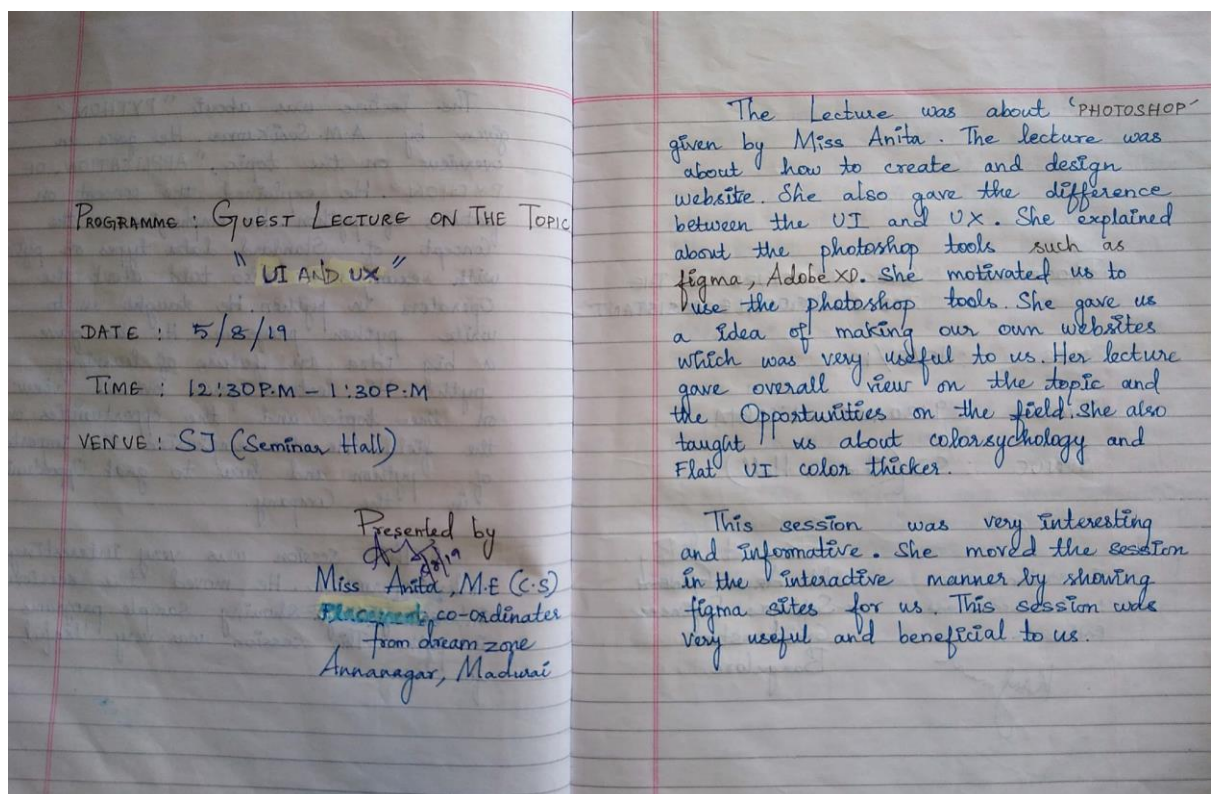 PROGRAMME : GUEST LECTURE ON THE TOPIC
" UI AND UX "
DATE : 5/8/19
TIME : 12:30P.M - 1:30P.M
VENUE : SJ (Seminar Hall)
Presented by
Miss Anita, M.E (C.S)
Placement co-ordinater
from dream zone
Annanagar, Madurai
The Lecture was about 'PHOTOSHOP'
given by Miss Anita. The lecture was
about how to create and design
website. She also gave the difference
between the UI and UX. She explained
about the photoshop tools such as
figma, Adobe XD. She motivated us to
use the photoshop tools. She gave us
a idea of making our own websites
which was very useful to us. Her lecture
gave overall view on the topic and
the Opportunities on the field. She also
taught us about colorsychology and
Flat UI color thicker.
This session was very interesting
and informative. She moved the session
in the interactive manner by showing
figma sites for us. This session was
very useful and beneficial to us.